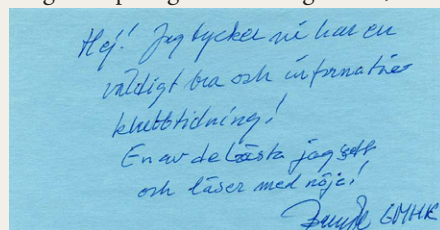 Hej! Jag tycker ni har en
väldigt bra och informativ
klubbtidning!
En av de bästa jag sett
och läser med nöje!
GMHK